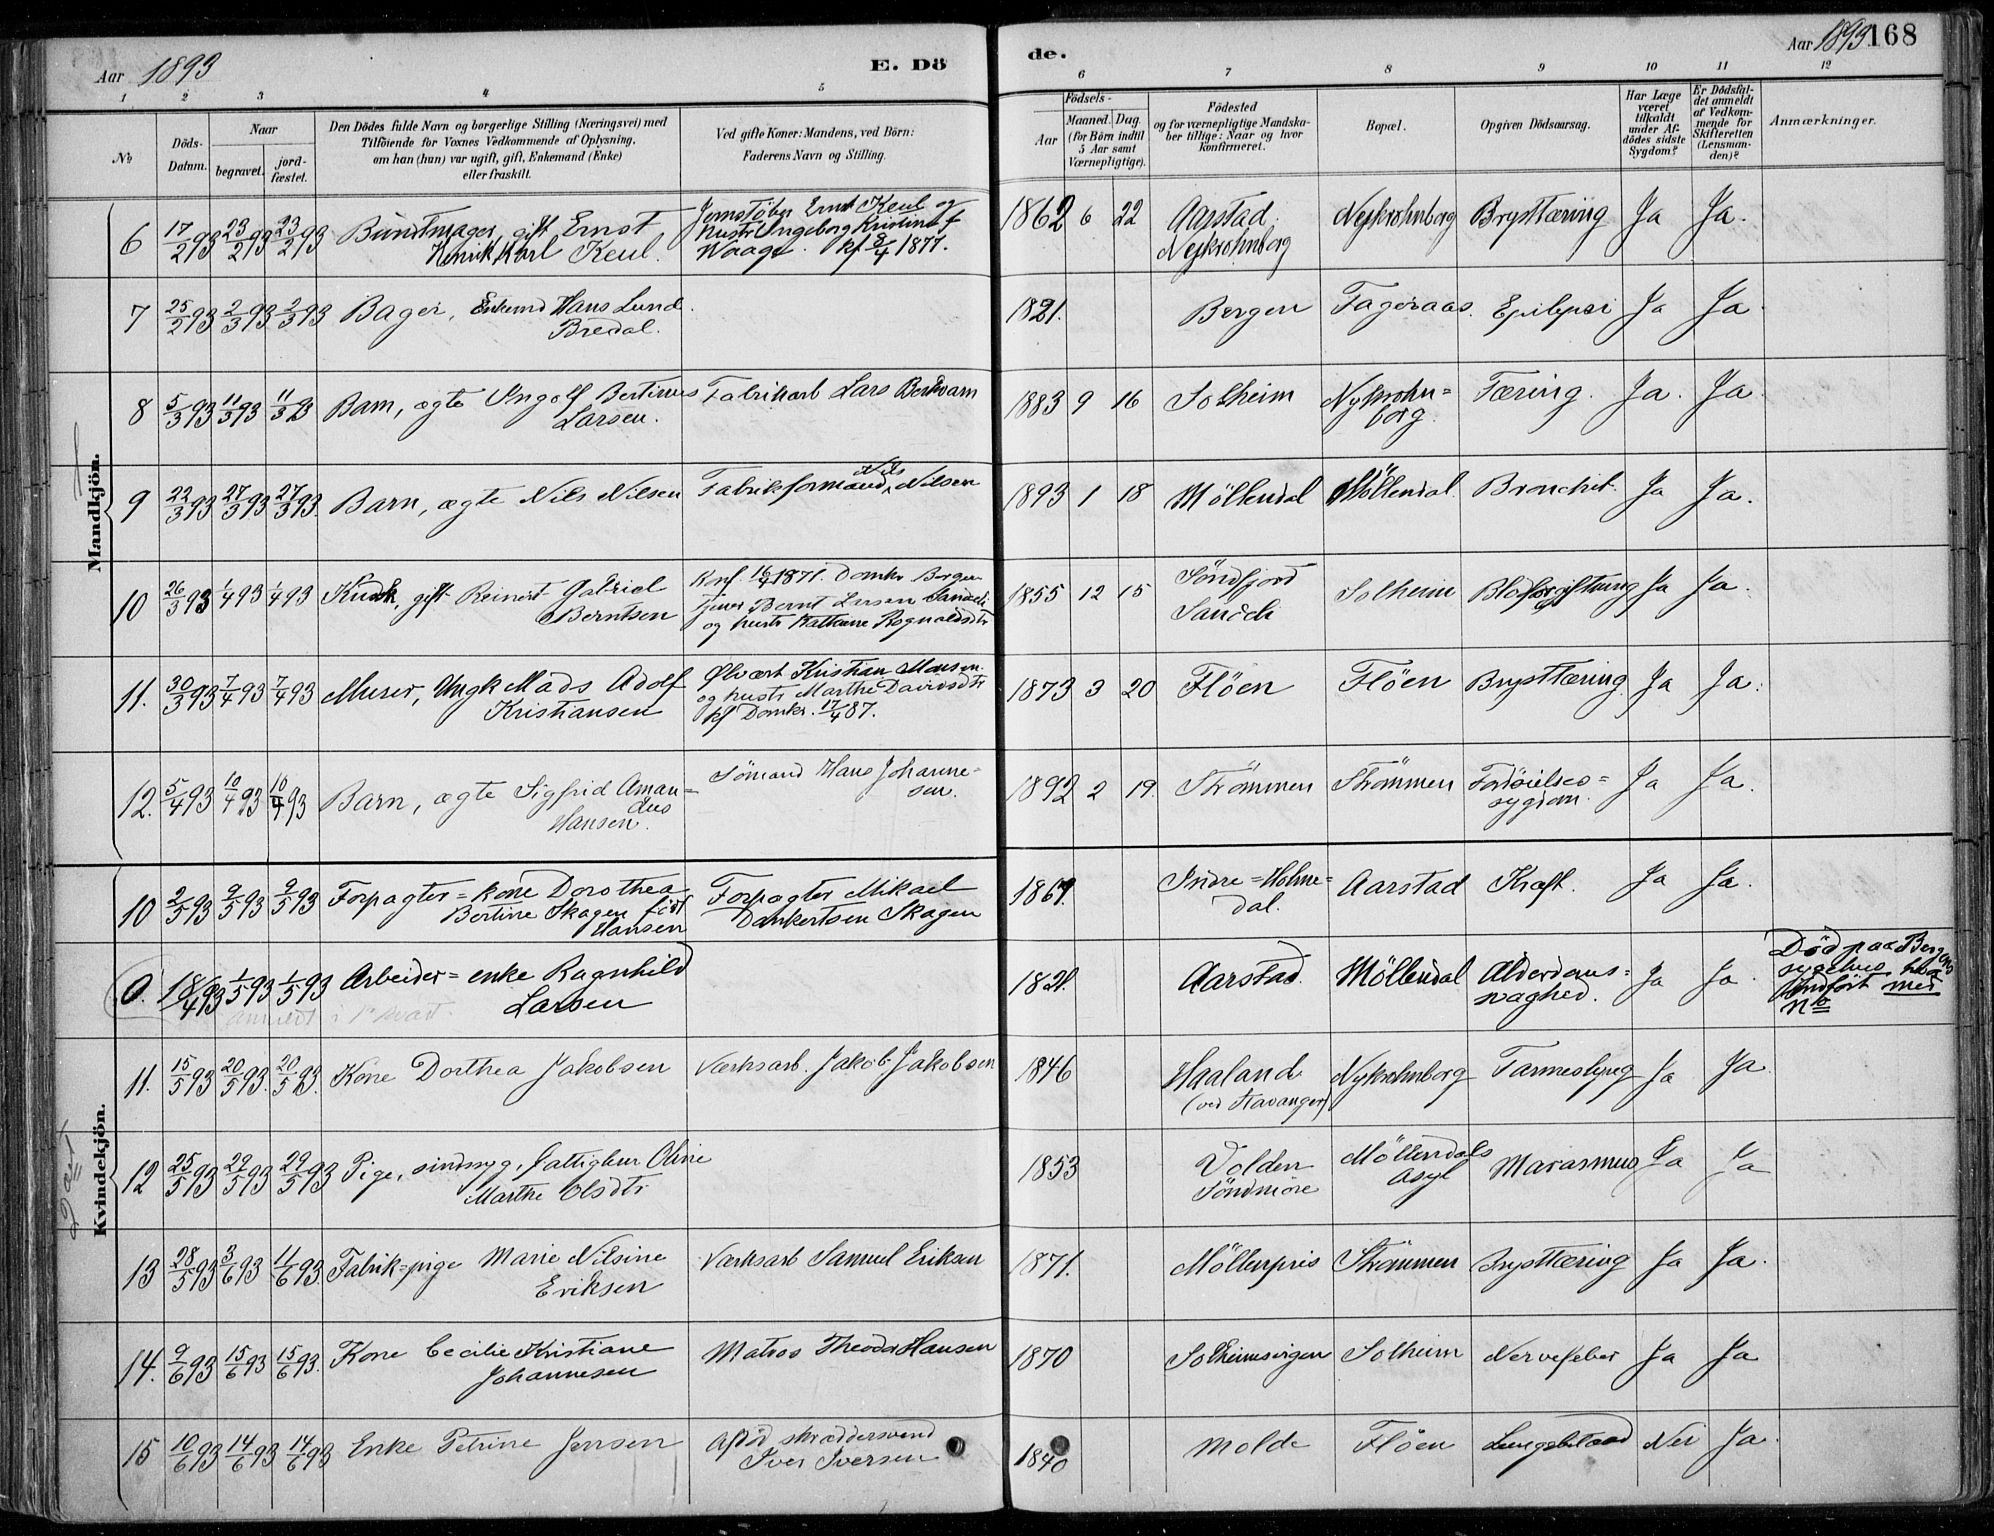 Aar 1893
E. Dö
de.
Aar 1893
168
1 2 3 4 5
6 7 8 9 10 11 12
No
Döds-Datum.
Naar
begravet.
jord-fæstet.
Den Dödes fulde Navn og borgerlige Stilling (Næringsvei) med
Tilföiende for Voxnes Vedkommende af Oplysning,
om han (hun) var ugift, gift, Enkemand (Enke)
eller fraskilt.
Ved gifte Koner: Mandens, ved Börn:
Faderens Navn og Stilling.
Födsels-
Aar
Maaned. Dag.
(for Börn indtil
5 Aar samt
Værnepligtige).
Födested
og for værnepligtige Mandska-
ber tillige: Naar og hvor
Konfirmeret.
Bopæl.
Opgiven Dödsaarsag.
Har Læge
været
tilkaldt
under Af-
dödes sidste
Sygdom?
Er Dödsfal-
det anmeldt
af Vedkom-
mende for
Skifteretten
(Lensman-
den)?
Anmærkninger.
Mandkjön.
6 17/2 93 23/2 93 23/2 93 Buntmager, gift Ernst Jernstöber Ernst Keul og 1862 6 22 Aarstad. Nykrohnborg Brysttæring Ja Ja.
Henrik Karl Keul. hustr Ingeborg Kristine f Nykrohnborg
Waage. kf 8/4 1877.
7 25/2 93 2/3 93 2/3 93 Bager, Enkemd Hans Lund 1821. Bergen Fageraas. Epilepsi Ja Ja.
Bredal.
8 5/3 93 11/3 93 11/3 93 Barn, ægte Ingolf Bertinus Fabrikarb Lars 1883 9 16 Solheim Nykrohn= Tæring. Ja. Ja.
Larsen. borg.
9 22/3 93 27/3 93 27/3 93. Barn, ægte Nils Nilsen Fabrikformand Nils Nilsen 1893 1 18 Möllendal Möllendal. Bronchit. Ja Ja.
10 26/3 93 1/4 93 1/4 93 Kusk, gift Reinert Gabriel Konf. 16/4 1871. Domkr Bergen 1855 12 15 Söndfjord Solheim Blodforgiftning Ja Ja.
Berntsen Bernt Larsen
og hustr Rognaldsdtr
11. 30/3 93 7/4 93 7/4 93 Murer, Ungk Mads Adolf Ölvært Kristian Monsen 1873 3 20 Flöen Flöen Brysttæring Ja Ja.
Kristiansen og hustr Marthe Davidsdtr
kf Domkr. 17/4 87.
12. 5/4 93 10/4 93 10/4 93 Barn, ægte Sigfrid Aman= Sömand Hans Johanne= 1892 2 19. Strömmen Strömmen Fordöielses= Ja Ja.
dus sen. sygdom.
Hansen.
Kvindekjön.
10 2/5 93 9/5 93 9/5 93 Forpagter=kone Dorothea Forpagter Mikael 1861. Indre=Holme= Aarstad Kræft. Ja Ja.
Bertine Skagen föd Dankertsen Skagen dal.
Hansen
0. 18/4 93 1/5 93 1/5 93 Arbeider=enke Ragnhild 1821. Aarstad. Möllendal Alderdoms= Ja Ja. Död paa Bergens
Larsen svaghed. sygehus
indfört med
No
11. 15/5 93 20/5 93. 20/5 93. Kone Dorthea Jakobsen Værksarb. Jakob Jakobsen 1846 Haaland Nykrohnborg Tarmeslyng Ja Ja.
(ved Stavanger)
12 25/5 93 29/5 93 29/5 93 Pige, sindssyg, fattiglem Oline 1853 Volden Möllendals Marasmus Ja Ja
Marthe Olsdtr Söndmöre Asyl
13 28/5 93 3/6 93 11/6 93. Fabrik=pige Marie Nilsine Værksarb Samuel Eriksen 1871. Möllenpris Strömmen Brysttæring Ja Ja.
Eriksen
14. 9/6 93 15/6 93 15/6 93. Kone Cecilie Kristiane Matros Theodor Hansen 1870 Solheimsvigen Solheim Nervefeber Ja Ja
Johannesen
15 10/6 93 14/6 93 14/6 93 Enke Petrine Jensen Afdöd skræddersvend 1840 Molde Flöen Nei Ja.
Iver Iversen